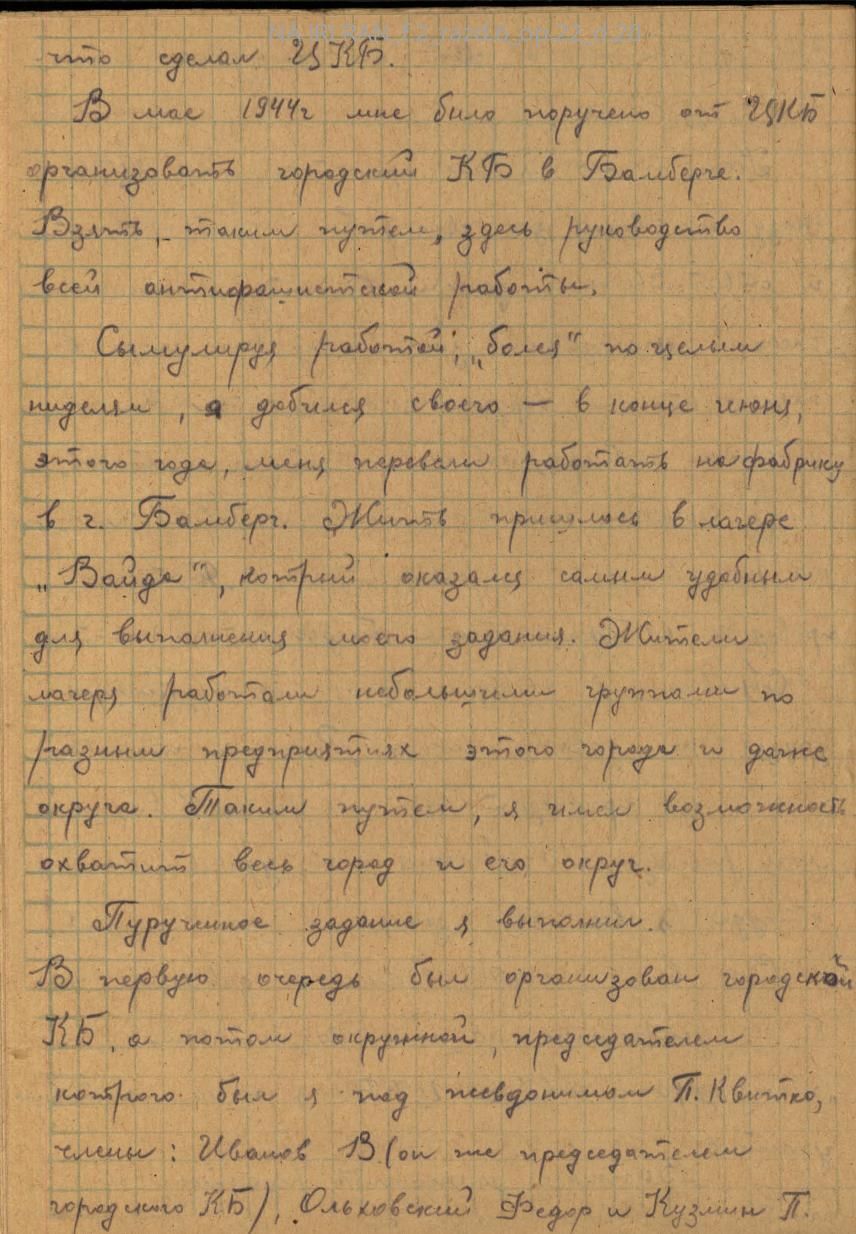 что сделал ЦКБ.
В мае 1944г мне было поручено от ЦКБ
организовать городский КБ в Бамберге.
Взять, таким путем, здесь руководство
всей антифашистской работы.
Сымулируя работой, „болея" по целым
ниделям, я добился своего — в конце июня,
этого года, меня перевели работать на фабрику
в г. Бамберг. Жить пришлось в лагере
„Вайде", котрый оказался самым удобным
для выполнения моего задания. Жители
лагеря работали небольшими группами по
разным предприятиях этого города и даже
округа. Таким путем, я имел возможность
охватит весь город и его округ.
Пурученное задание я выполнил.
В первую очередь был организован городской
КБ, а потом окружной, председателем
котрого был я под псевдонимом П. Квитко,
члены: Иванов В (он же председателем
городского КБ), Ольховский Федор и Кузмин П.